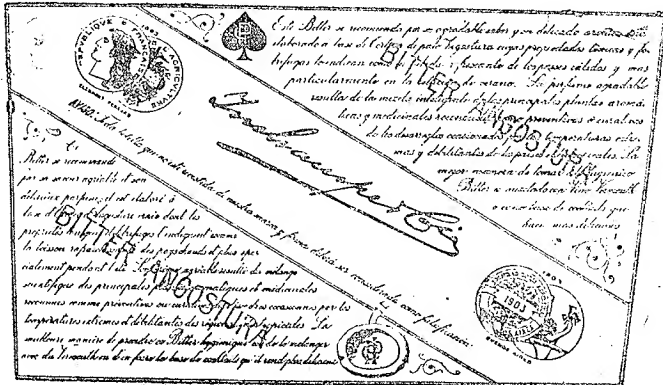 REPUBLIQUE FRANÇAISE
1903
L'AGRICULTURE
PB
Este Bitter se recomienda por su agradable sabor y su delicado aroma. Está
elaborado a base de Corteza de palo Angostura cuyas propiedades tónicas y fe-
brífugas lo indican como la bebida refrescante de los países cálidos y mas
particularmente en la estación de verano. Su perfume agradable
resulta de la mezcla inteligente de las principales plantas aromá-
ticas y medicinales reconocidas como preventivas ó curativas
de los desarreglos ocasionados por las temperaturas extre-
mas y debilitantes de los países tropicales. La
mejor manera de tomar el Bitter higiénico
Bitter es mezclado con Vino Vermouth
BITTER ANGOSTURA
AVISO: Toda botella que no esté revestida de nuestra marca y firma deberá ser considerada como falsificación
Ce
Bitter se recommande
par sa saveur agréable et son
délicieux parfum, il est élaboré à
base d'écorce d'Angosture vraie dont les
propriétés toniques et fébrifuges l'indiquent comme
la boisson rafraichissante des pays chauds et plus spé-
cialement pendant l'été. Son parfum agréable résulte du mélange
scientifique des principales plantes aromatiques et médicinales
reconnues comme préventives ou curatives des désordres occasionnés par les
températures extrêmes et débilitantes des régions tropicales. La
meilleure manière de prendre ce Bitter hygiénique est de le mélanger
avec du Vermouth
BITTER ANGOSTURA
1903
1903
BUENOS AIRES
PB